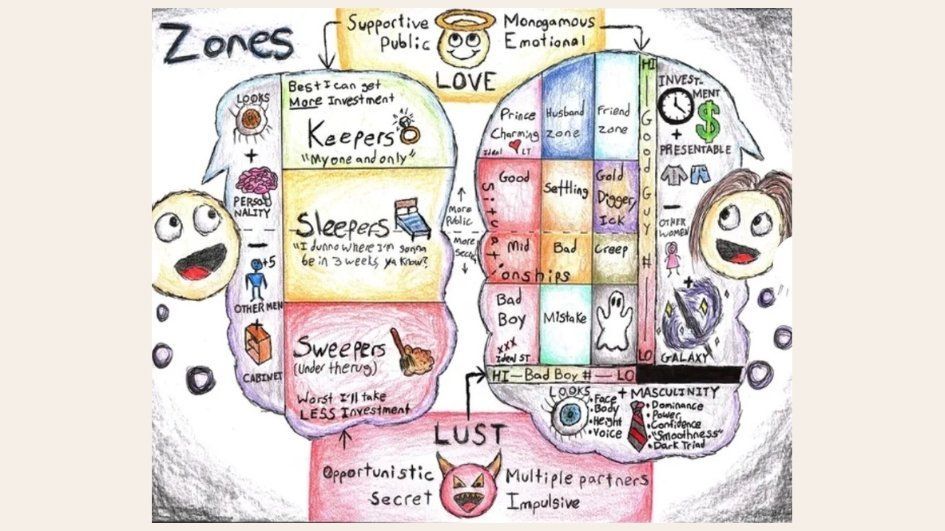 Zones
Supportive
Public
Monogamous
Emotional
LOVE
LOOKS
+
PERSO
NALITY
-
+5
OTHER MEN
+
CABINET
Best I can get
More Investment
Keepers
"My one and only"
Sleepers
"I dunno where I'm gonna
be in 3 weeks, ya know?
Sweepers
(Under the rug)
Worst I'll take
LESS Investment
More
Public
More
Secret
Prince
Charming
Ideal LT
Husband
zone
Friend
zone
Good
Settling
Gold
Digger/
Ick
Mid
Bad
Creep
Situationships
Bad
Boy
xxx
Ideal ST
Mistake
HI - Good Guy # - LO
HI - Bad Boy # - LO
INVEST-
MENT
$
+
PRESENTABLE
-
OTHER
WOMEN
+
GALAXY
LOOKS
• Face
• Body
• Height
• Voice
+ MASCULINITY
• Dominance
• Power
• Confidence
• "Smoothness"
• Dark Triad
LUST
Opportunistic
Secret
Multiple partners
Impulsive